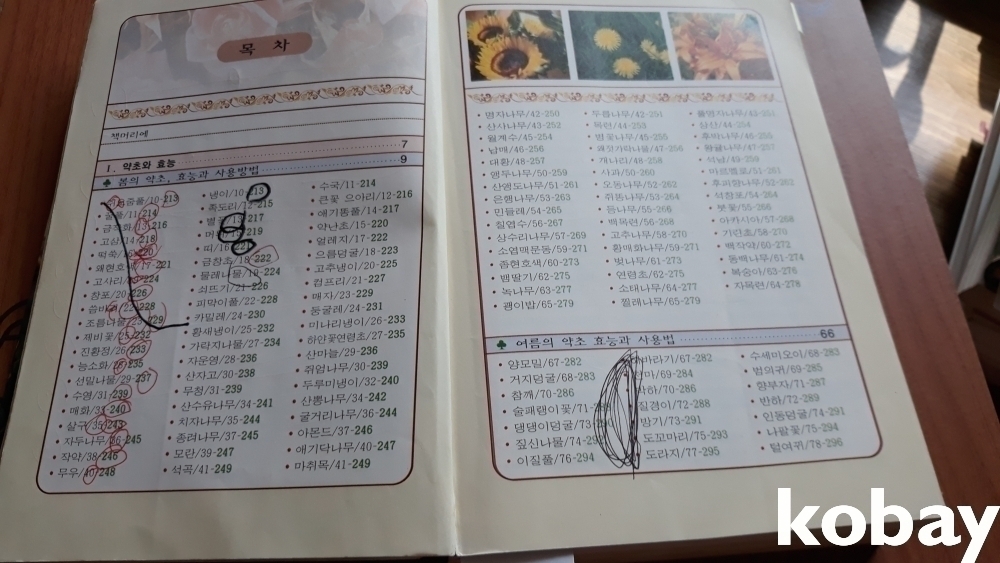 목 차
책머리에
7
Ⅰ. 약초와 효능
9
♣ 봄의 약초, 효능과 사용방법
굴풀/11-214
고삼/14-218
고사리/
창포/20-226
조름나물/25-229
제비꽃/25-232
진황정/26-233
능소화/28-235
선밀나물/29-237
수영/31-239
매화/33-240
살구/35-243
자두나무/36-245
작약/38-246
무우/40-248
• 냉이/10-213
• 족도리/12-215
217
219
• 띠/16
• 금창초/18-222
• 물레나물/19-224
• 쇠뜨기/21-226
• 피막이풀/22-228
• 카밀레/24-230
• 황새냉이/25-232
• 가락지나물/27-234
• 자운영/28-236
• 산자고/30-238
• 무청/31-239
• 산수유나무/34-241
• 치자나무/35-244
• 종려나무/37-245
• 모란/39-247
• 석곡/41-249
• 수국/11-214
• 큰꽃 으아리/12-216
• 애기똥풀/14-217
• 약난초/15-220
• 얼레지/17-222
• 으름덩굴/18-223
• 고추냉이/20-225
• 컴프리/21-227
• 매자/23-229
• 둥굴레/24-231
• 미나리냉이/26-233
• 하얀꽃연령초/27-235
• 산마늘/29-236
• 쥐엄나무/30-239
• 두루미냉이/32-240
• 산뽕나무/34-242
• 굴거리나무/36-244
• 아몬드/37-246
• 애기닥나무/40-247
• 마취목/41-249
• 명자나무/42-250
• 산사나무/43-252
• 월계수/45-254
• 납매/46-256
• 대황/48-257
• 앵두나무/50-259
• 산앵도나무/51-261
• 은행나무/53-263
• 민들레/54-265
• 칠엽수/56-267
• 상수리나무/57-269
• 소엽맥문동/59-271
• 좀현호색/60-273
• 뱀딸기/62-275
• 녹나무/63-277
• 괭이밥/65-279
• 두릅나무/42-251
• 목련/44-253
• 벚꽃나무/45-255
• 개나리/48-258
• 사과/50-260
• 오동나무/52-262
• 쥐똥나무/53-264
• 등나무/55-266
• 백목련/56-268
• 고추나무/58-270
• 황매화나무/59-271
• 벗나무/61-273
• 연령초/62-275
• 소태나무/64-277
• 찔레나무/65-279
• 풀명자나무/43-251
• 삼산/44-254
• 후박나무/46-255
• 왕귤나무/47-257
• 석남/49-259
• 마르멜로/51-261
• 후피향나무/52-262
• 석창포/54-264
• 붓꽃/55-266
• 아카시아/57-268
• 기린초/58-270
• 백작약/60-272
• 동백나무/61-274
• 복숭아/63-276
• 자목련/64-278
♣ 여름의 약초 효능과 사용법
66
• 양모밀/67-282
• 거지덩굴/68-283
• 참깨/70-286
• 술패랭이꽃/71-
• 댕댕이덩굴/73-
• 짚신나물/74-
• 이질풀/76-294
바라기/67-282
마/69-284
하/70-286
질경이/72-288
방기/73-291
도꼬마리/75-293
도라지/77-295
• 수세미오이/68-283
• 범의귀/69-285
• 향부자/71-287
• 반하/72-289
• 인동덩굴/74-291
• 나팔꽃/75-294
• 털여뀌/78-296
kobay